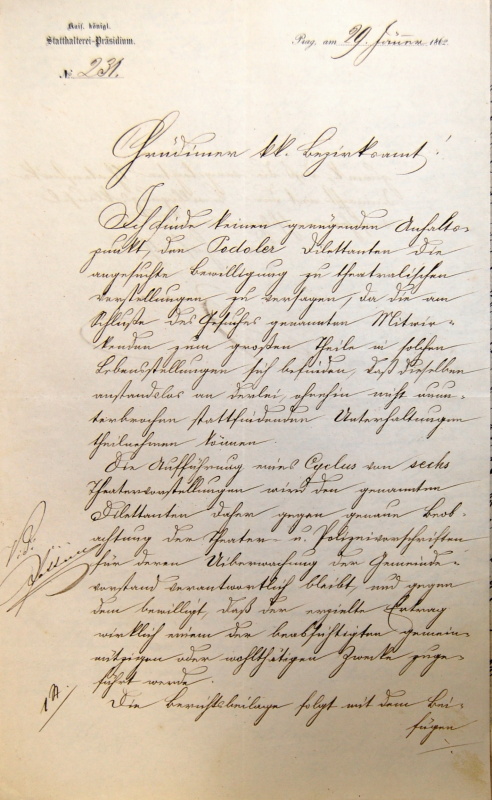 Kais. königl.
Statthalterei-Präsidium.
№ 231.
Prag, am 29. Jänner 186
Chrudimer kk. Bezirksamt!
Ich finde keinen genügenden Anhalts-
punkt, den Podoler Dilettanten die
angesuchte Bewilligung zu theatralischen
Vorstellungen zu versagen, da die am
Schluße des Gesuches genannten Mitwir-
kenden zum großen Theile in solchen
Lebensstellungen sich befinden, daß dieselben
anstandslos an derlei, ohnehin nicht unun-
terbrochen stattfindenden Unterhaltungen
theilnehmen können.
Die Aufführung eines Cyclus von sechs
Theatervorstellungen wird den genannten
Dilettanten daher gegen genaue Beob-
achtung der Theater- u. Polizeivorschriften
für deren Ueberwachung der Gemeinde-
vorstand verantwortlich bleibt, und gegen
dem bewilligt, daß der erzielte Ertrag
wirklich einem der beabsichtigten gemein-
nützigen oder wohlthätigen Zwecke zuge-
führt werde.
Die Berichtsbeilage folgt mit dem Bei-
fügen
Vidi